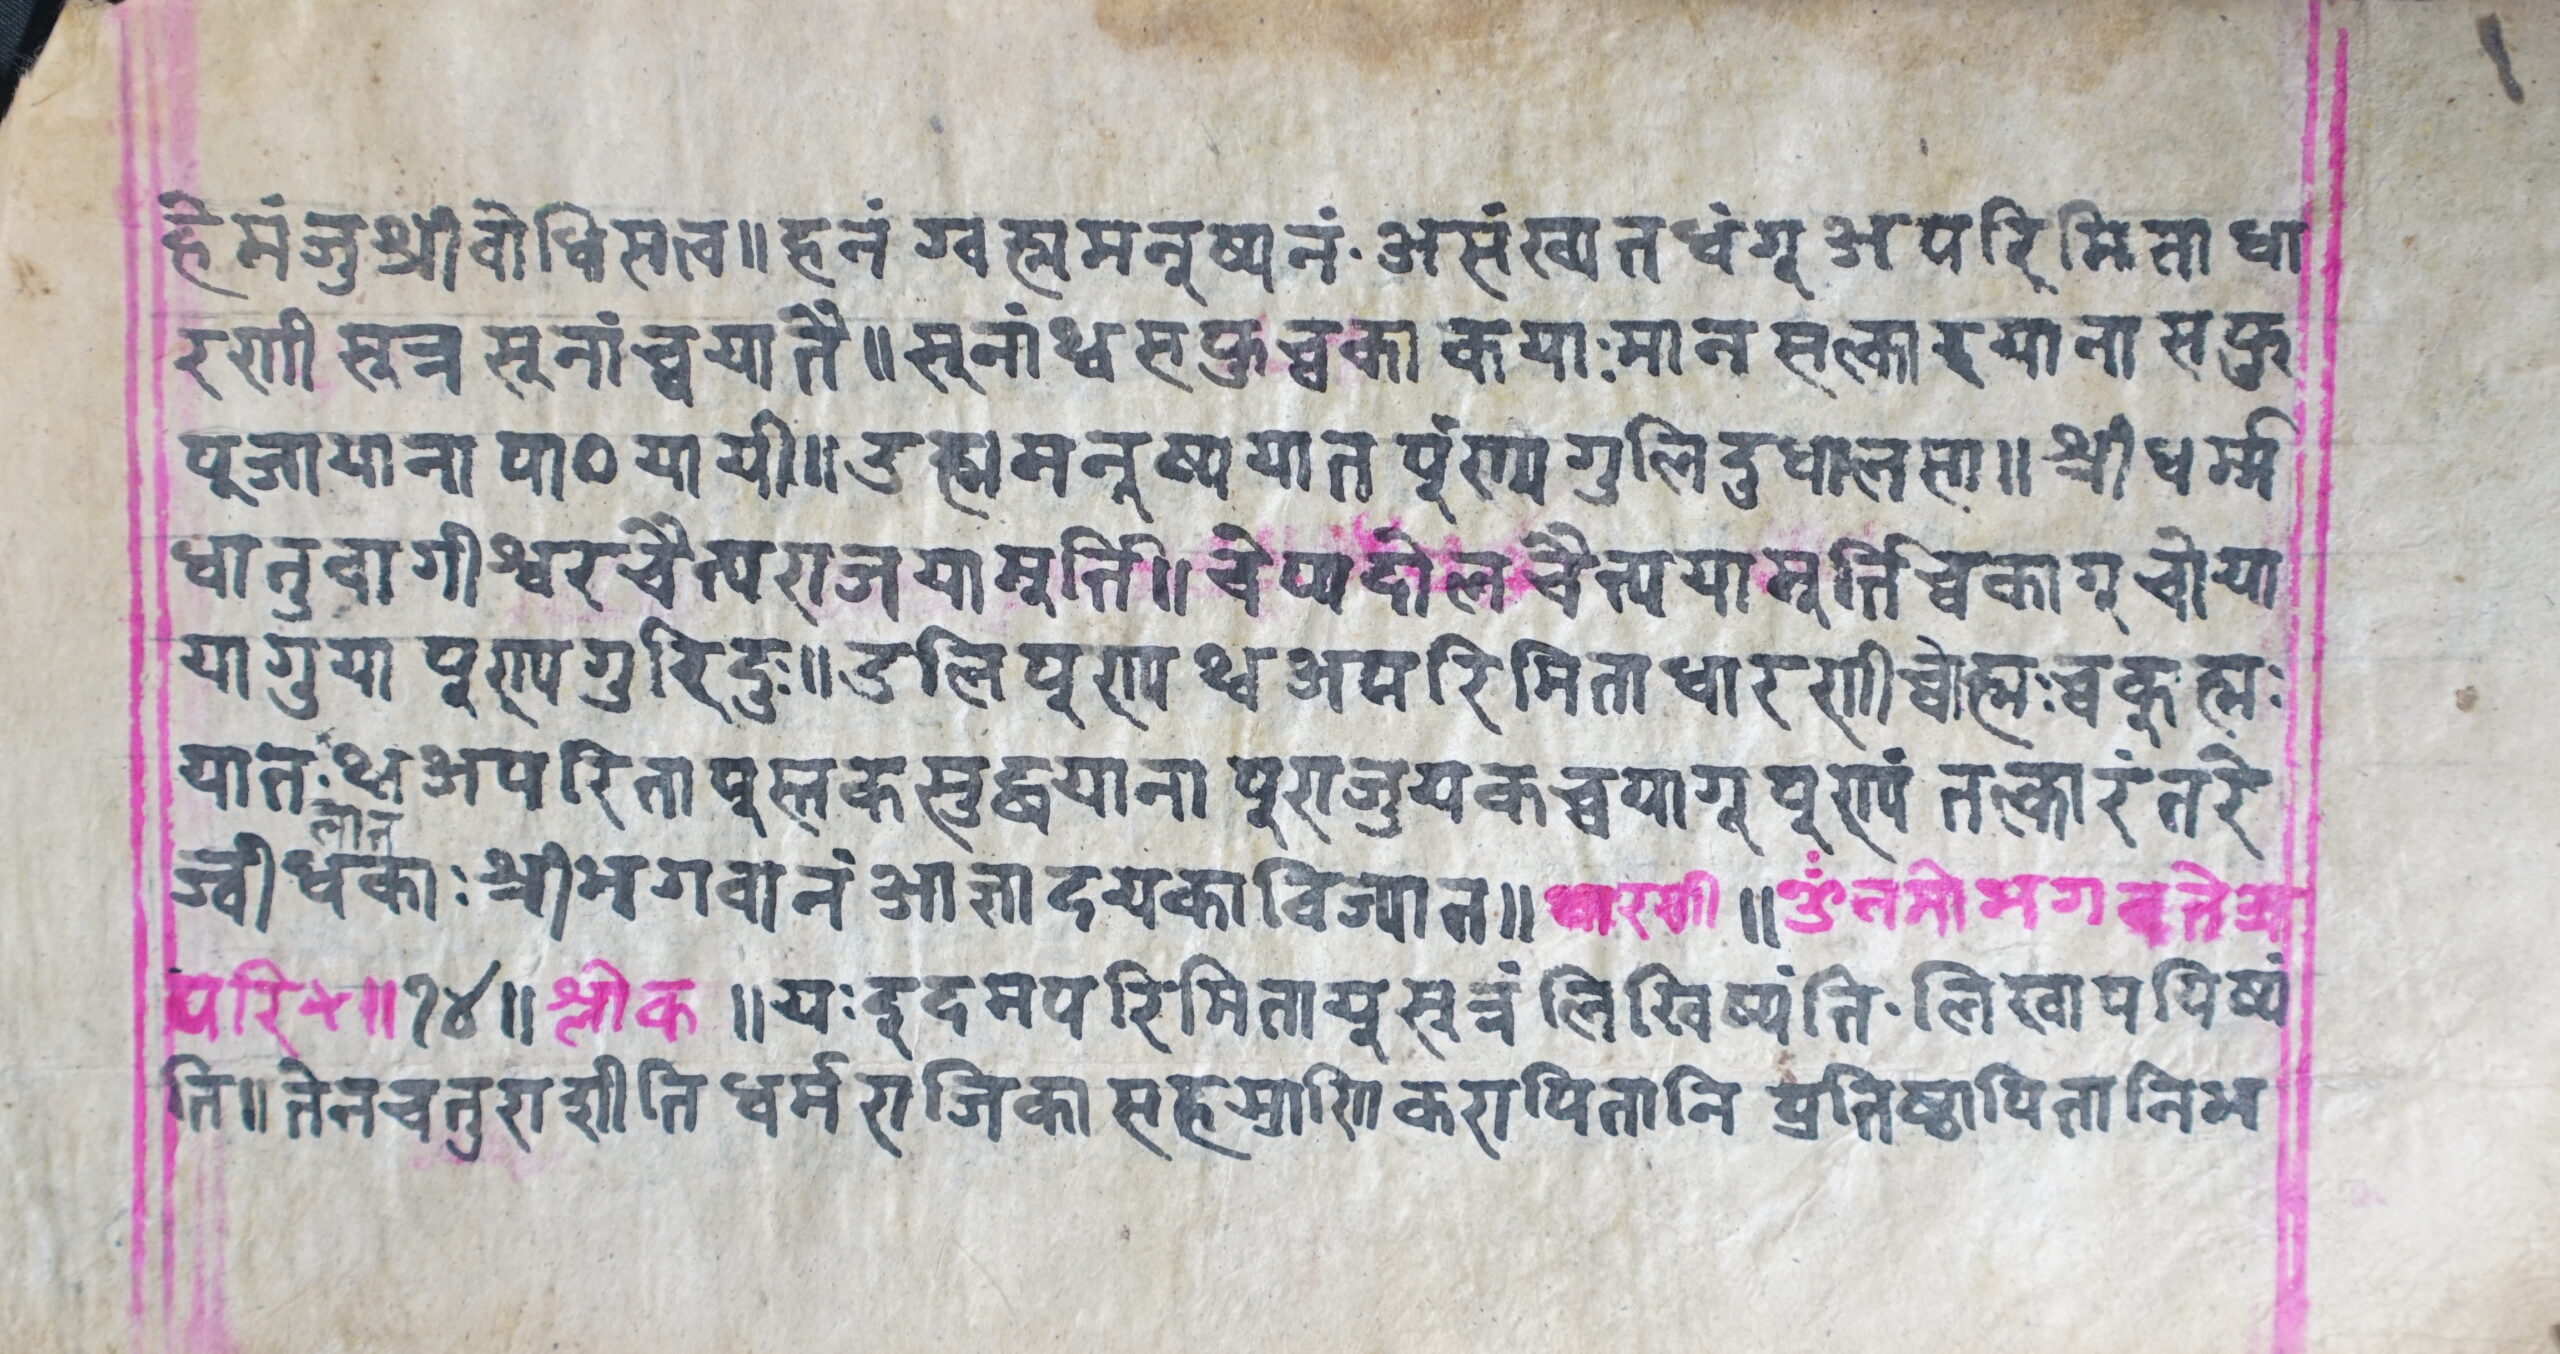 हे मंजुश्री वोधिसत्व॥ हनं ग्वह्म मनुष्यनं· असंख्यत धंगू अपरिमिता धा
रणी सूत्र सूनां च्वयातै॥ सूनां थ्व सफु च्वका कयाः मान सत्कार याना सफु
पूजा याना पाठ यायी॥ उह्म मनुष्ययात पूंण्य गुलि दुधालसा॥ श्री धर्म्म
धातु वागीश्वर चैत्यराजया मूर्त्ति॥ चेप्यदोल चैत्यया मूर्त्ति च्वकागू चोया
यागुया पूण्य गुरि दुः॥ उलि पूण्य थ्व अपरिमिता धारणी च्वोह्मः च्वकुह्मः
यातः थ्व अपरिता पूस्तक सुद्ध याना पूराजुयक च्वयागू पूण्यं तत्कारं तरे
लात
ज्वी धकाः श्री भगवानं आज्ञा दयका विज्यात॥ धारणी॥ ॐ नमो भगवतेअ
परि ×॥ १४॥ श्लोक॥ यः इदमपरिमितायू सूत्रं लिखिष्यंति· लिखापयिष्यं
ति॥ तेन चतुराशीति धर्मराजिका सहस्राणि करापितानि प्रतिष्ठापितानि भ